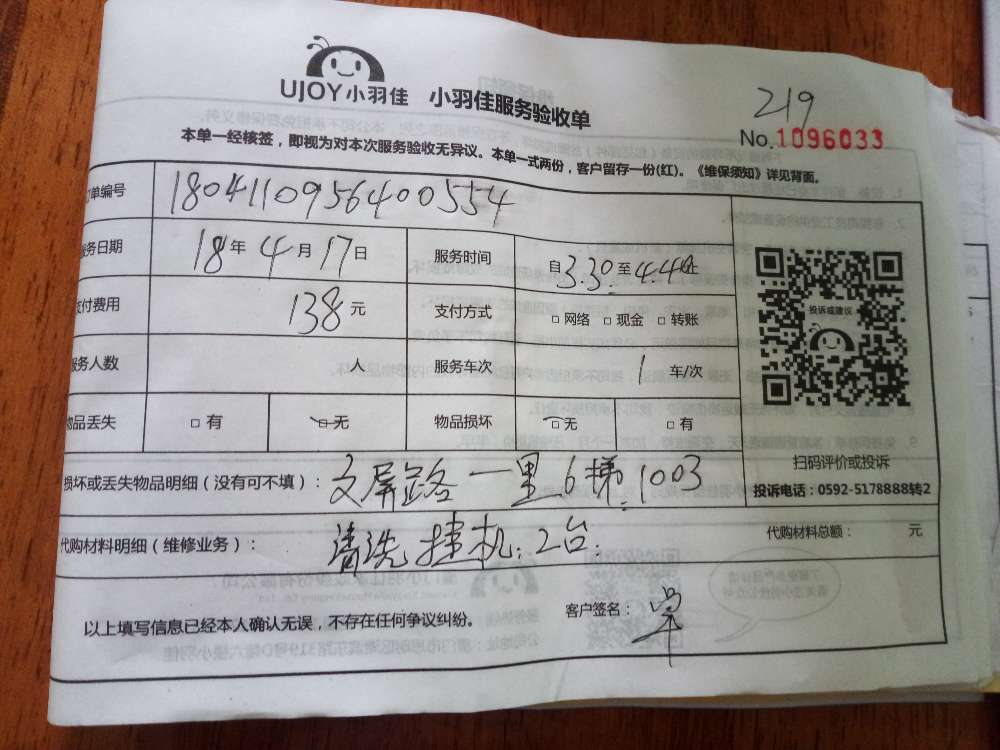 219
UJOY小羽佳 小羽佳服务验收单
No.1096033
本单一经核签，即视为对本次服务验收无异议。本单一式两份，客户留存一份(红)。《维保须知》详见背面。
单编号 1804110956400554
务日期 18年4月17日 服务时间 自3.30至4.40止
付费用 138元 支付方式 □网络 □现金 □转账
务人数 人 服务车次 1 车/次
物品丢失 □有 □无 物品损坏 □无 □有
投诉或建议
扫码评价或投诉
投诉电话：0592-5178888转2
损坏或丢失物品明细（没有可不填）：文屏路一里6梯1003
代购材料明细（维修业务）：清洗挂机:2台 代购材料总额： 元
以上填写信息已经本人确认无误，不存在任何争议纠纷。 客户签名：